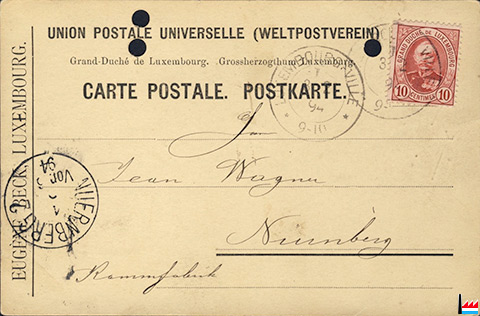 UNION POSTALE UNIVERSELLE (WELTPOSTVEREIN)
Grand-Duché de Luxembourg. Grossherzogthum Luxemburg.
CARTE POSTALE. POSTKARTE.
GRAND DUCHÉ DE LUXEMBOURG
10 CENTIMES 10
LUXEMBOURG-VILLE
94
9-10
Jean Wagner
Nürnberg
Kammfabrik
NUERNBERG 2
94
EUGÈNE BECK, LUXEMBOURG.